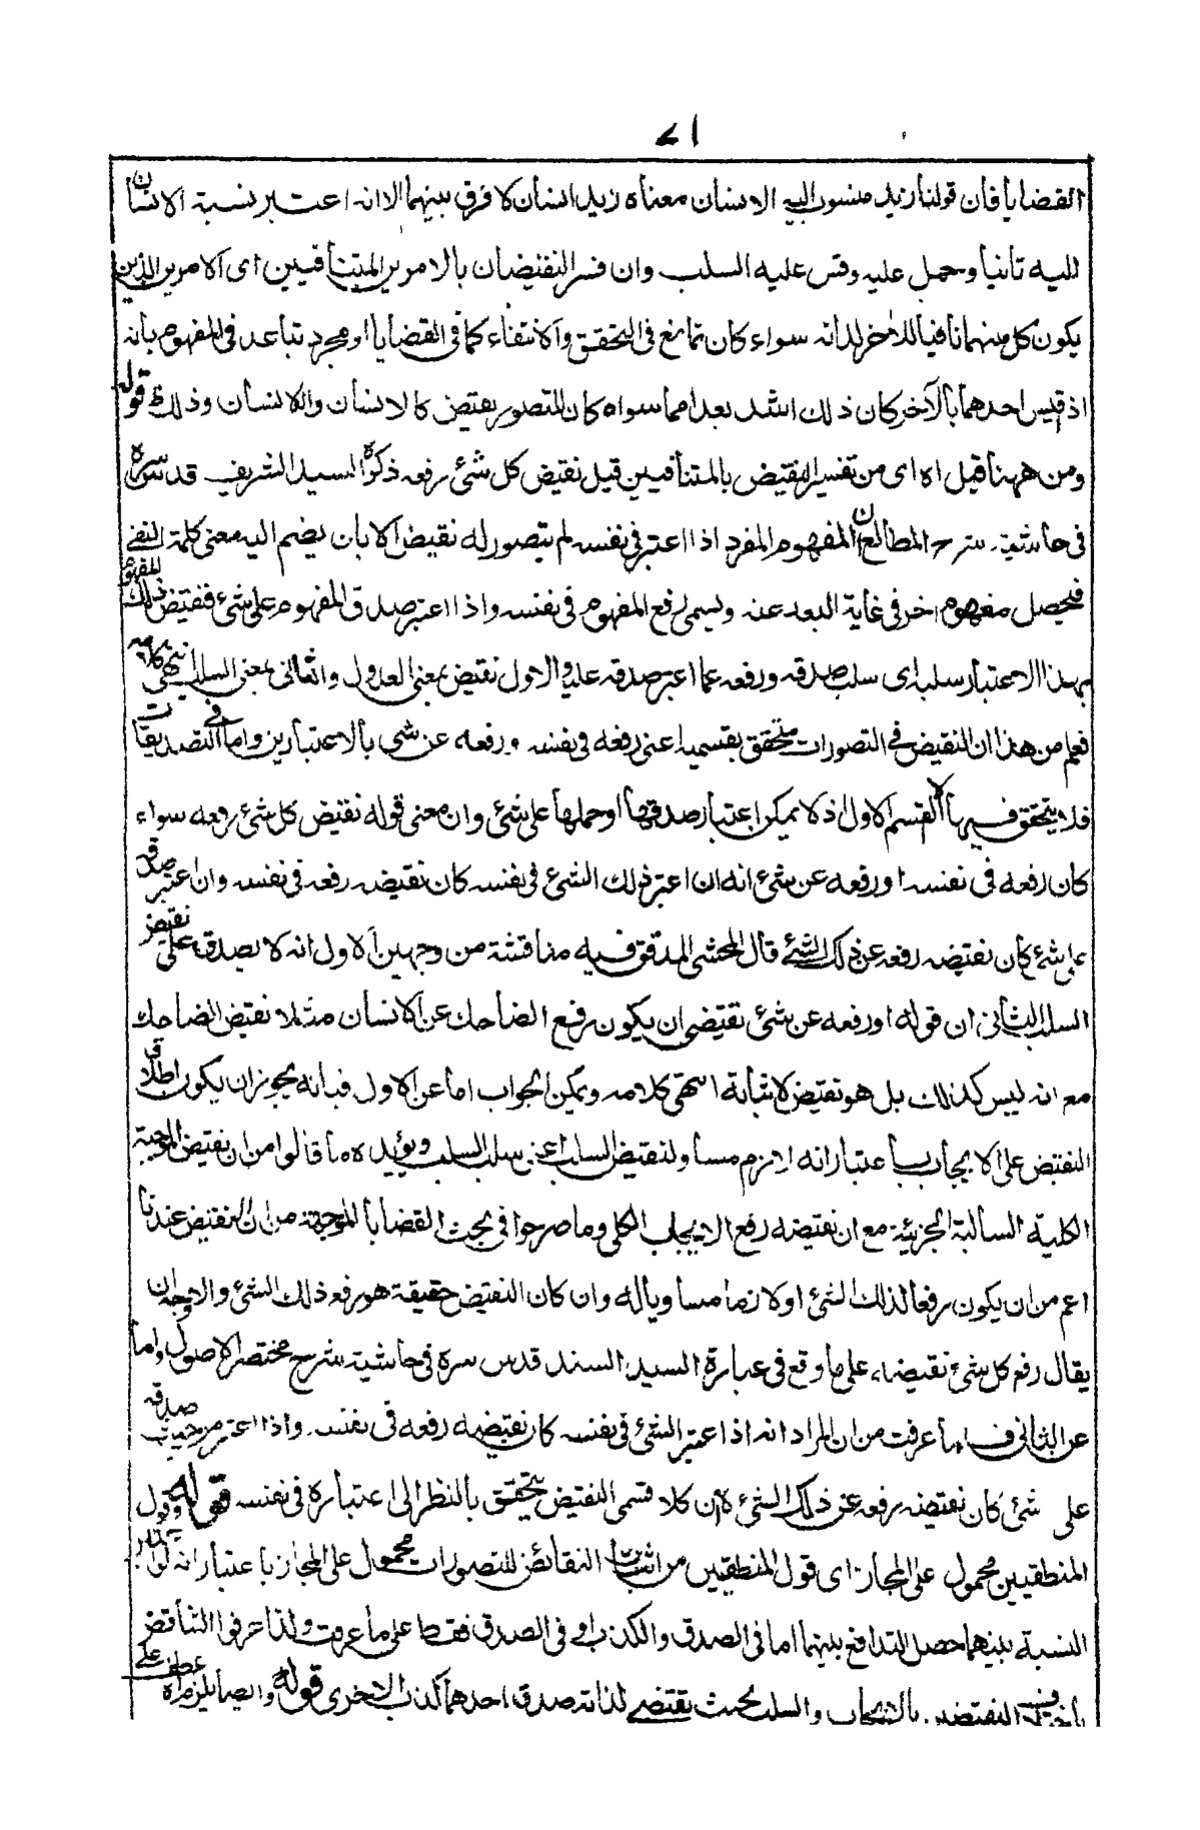 ٧١
القضايا فان قولنا زيد منسوب اليه الانسان معناه زيد انسان لا فرق بينهما الا انه اعتبر نسبة الانسان
اليه ثانيا وحمل عليه وقس عليه السلب وان فسر النقيضان بالامرين المتنافيين اى الامرين الذين
يكون كل منهما نافيا للآخر لذاته سواء كان تمانع فى التحقق والانتفاء كما فى القضايا او مجرد تباعد فى المفهوم بانه
اذ قيس احدهما بالآخر كان ذلك اشد بعدا مما سواه كان للتصور نقيض كالانسان واللاانسان وذلك ظ قوله
ومن ههنا قيل اه اى من تفسير النقيض بالمتنافيين قيل نقيض كل شئ رفعه ذكره السيد الشريف قدس سره
فى حاشية شرح المطالع ان المفهوم المفرد اذا اعتبر فى نفسه لم يتصور له نقيض الا بان يضم اليه معنى كلمة النفى
فيحصل مفهوم اخر فى غاية البعد عنه ويسمى رفع المفهوم فى نفسه واذا اعتبر صدق المفهوم على شئ فنقيض ذلك المفهوم
بهذا الاعتبار سلبه اى سلب صدقه ورفعه عما اعتبر صدقه عليه والاول نقيض بمعنى العدول والثانى بمعنى السلب انتهى كلامه
فعلم من هذا ان النقيض فى التصورات متحقق بقسميه اعنى رفعه فى نفسه ورفعه عن شئ بالاعتبارين واما فى التصديقات
فلا يتحقق فيها الا القسم الاول اذ لا يمكن اعتبار صدقها او حملها على شئ وان معنى قوله نقيض كل شئ رفعه سواء
كان رفعه فى نفسه او رفعه عن شئ انه ان اعتبر ذلك الشئ فى نفسه كان نقيضه رفعه فى نفسه وان اعتبر صدقه
على شئ كان نقيضه رفعه عن ذلك الشئ قال المحشى المدقق فيه مناقشة من وجهين الاول انه لا يصدق على نقيض
السلب الثانى ان قوله او رفعه عن شئ نقتضى ان يكون رفع الضاحك عن الانسان مثلا نقيض الضاحك
مع انه ليس كذلك بل هو نقيض لاثباته انتهى كلامه ويمكن الجواب اما عن الاول فبانه يجوز ان يكون اطلاق
النقيض على الايجاب باعتبار انه لازم مساو لنقيض السلب اعنى سلب السلب ويؤيده ما قالوا من ان نقيض الموجبة
الكلية السالبة الجزئية مع ان نقيضه رفع الايجاب الكلى وما صرحوا فى بحث القضايا الموجهة من ان النقيض عندنا
اعم من ان يكون رفعا لذلك الشئ او لازما مساويا له وان كان النقيض حقيقة هو رفع ذلك الشئ والاوجه ان
يقال رفع كل شئ نقيضه على ما وقع فى عبارة السيد السند قدس سره فى حاشية شرح مختصر الاصول واما
عن الثانى فبما عرفت من ان المراد انه اذا اعتبر الشئ فى نفسه كان نقيضه رفعه فى نفسه واذا اعتبر من حيث صدقه
على شئ كان نقيضه رفعه عن ذلك الشئ لا ان كلا قسمى النقيض يتحقق بالنظر الى اعتباره فى نفسه قوله وقول
المنطقيين محمول على المجاز اى قول المنطقيين من اثبات النقائض للتصورات محمول على المجاز باعتبار انه لو اعتبر
النسبة بينهما حصل التدافع بينهما اما فى الصدق والكذب او فى الصدق فقط على ما عرفت ولذا عرفوا التناقض
باختلاف القضيتين بالايجاب والسلب بحيث يقتضى لذاته صدق احدهما كذب الاخرى قوله وايضا يلزم اه عطف على